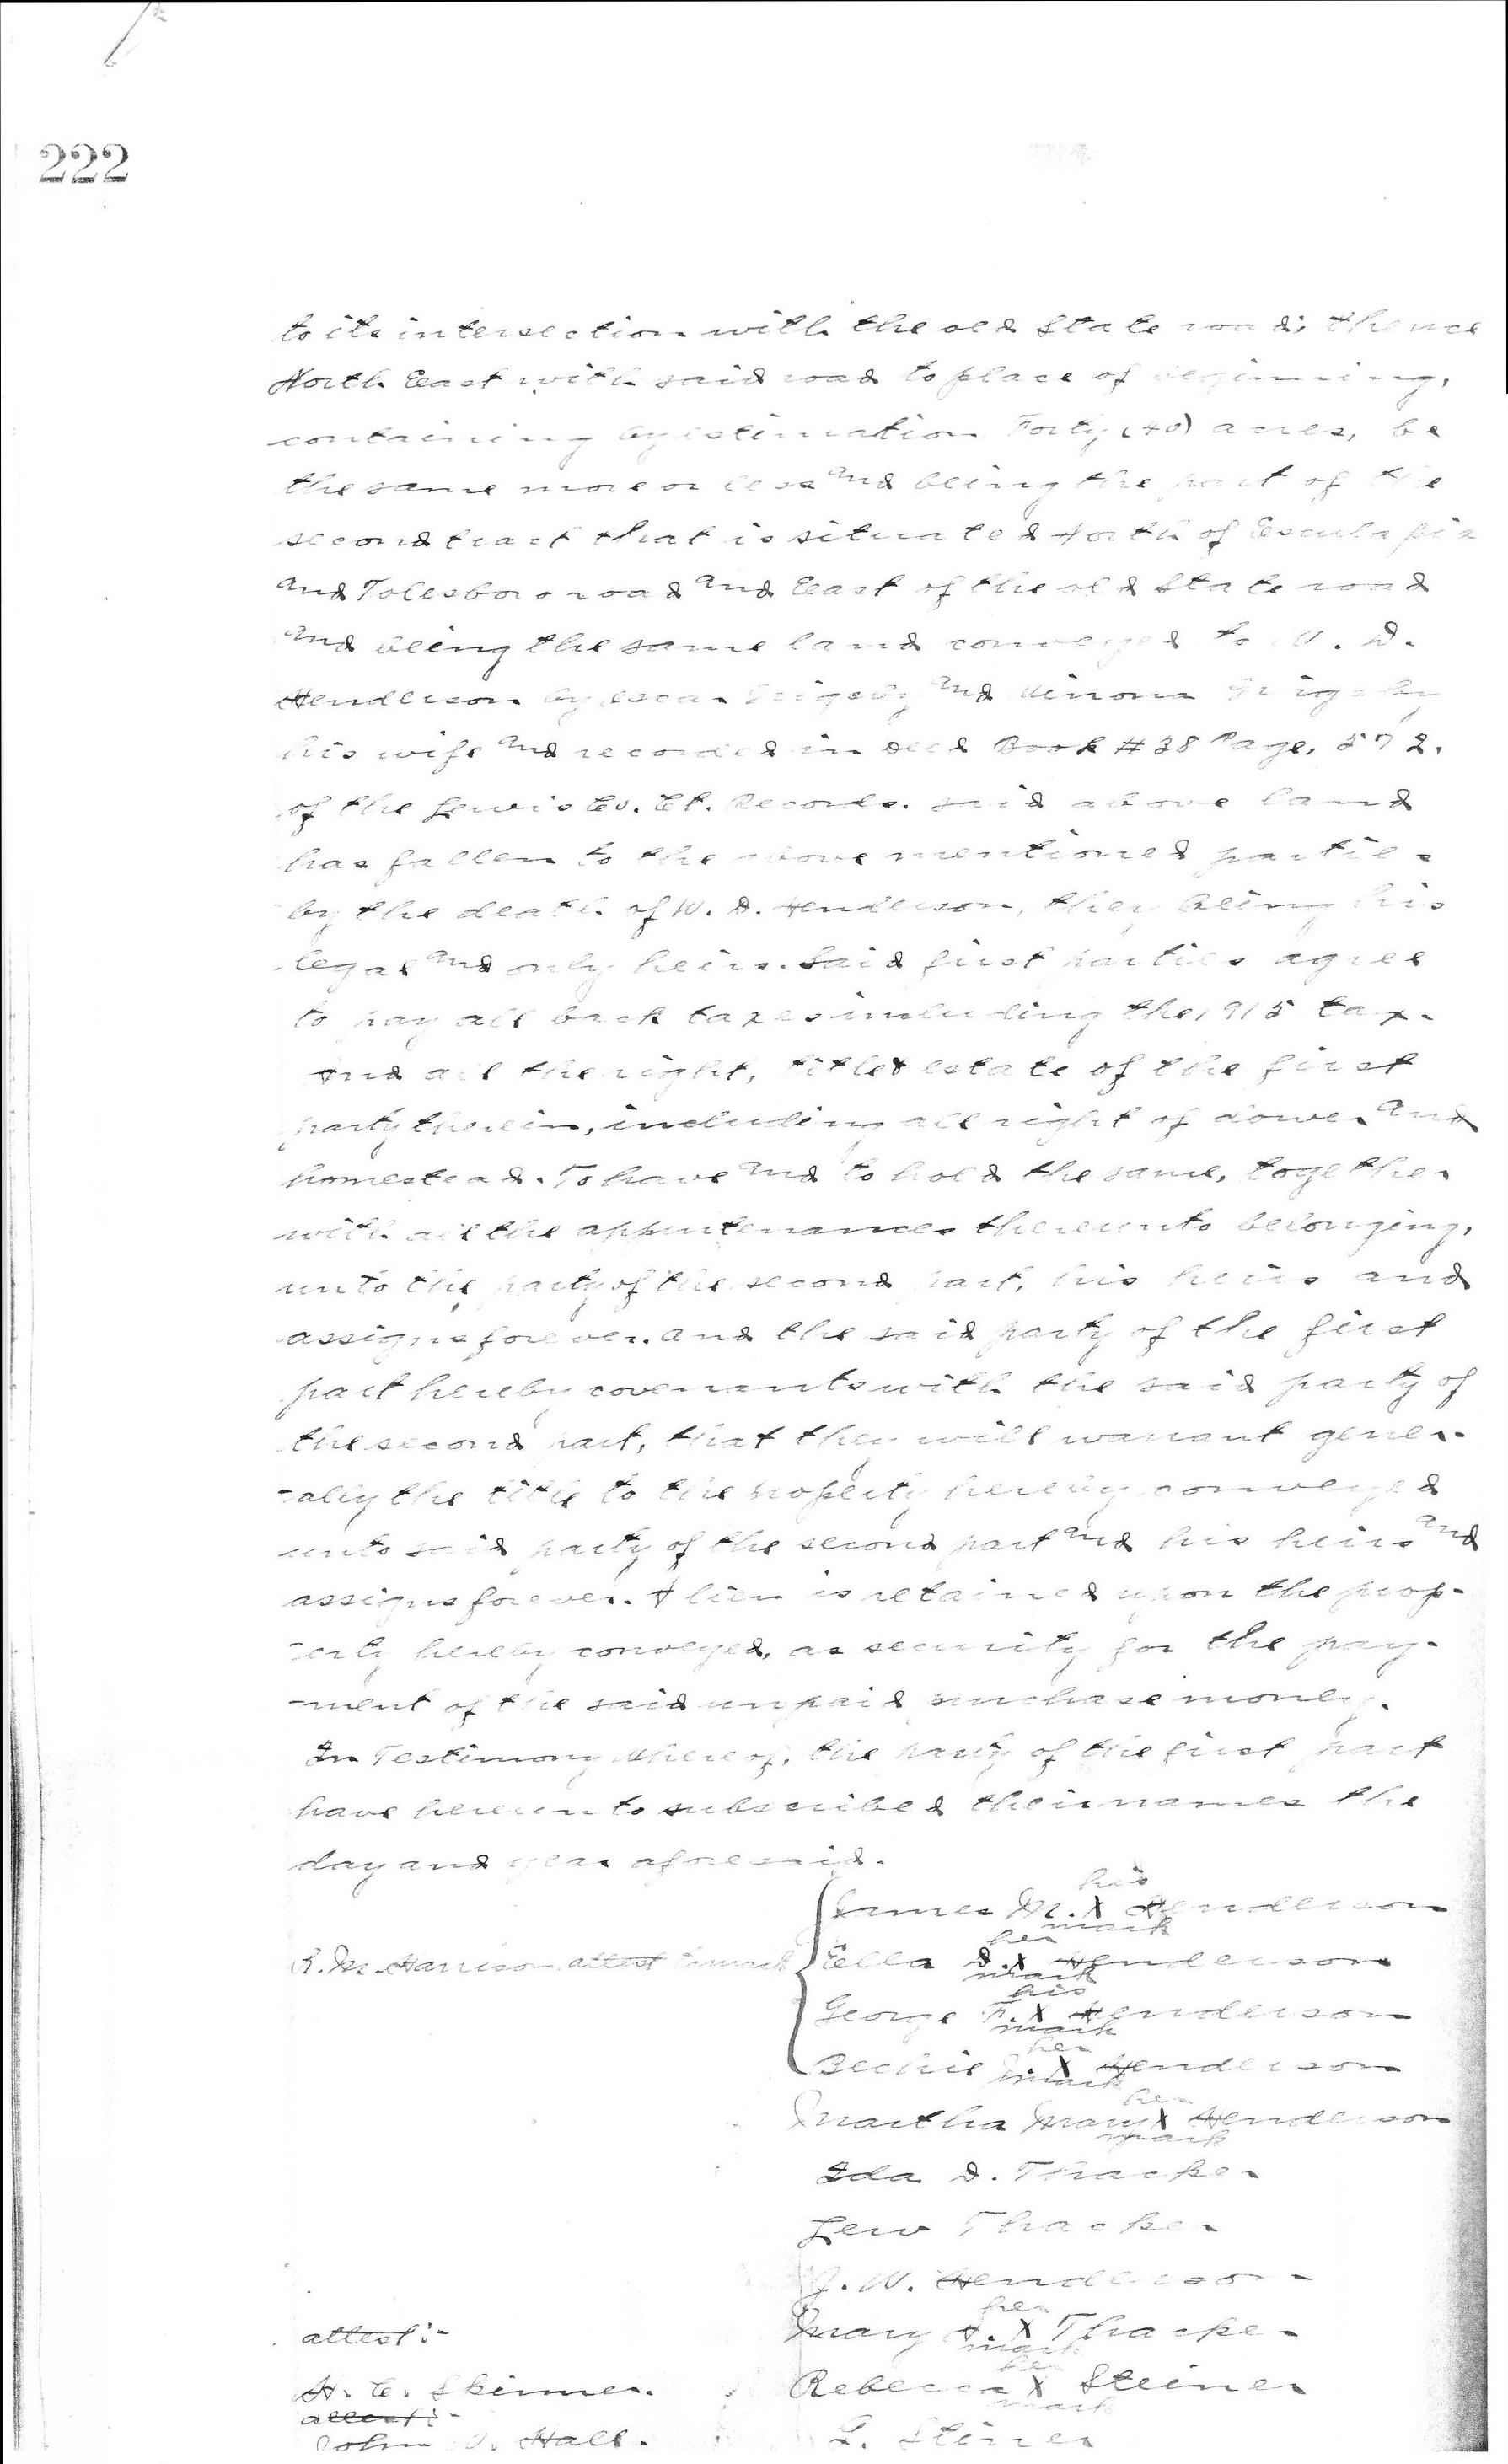 222
to its intersection with the old State road; thence
North East with said road to place of beginning,
containing by estimation Forty (40) acres, be
the same more or less and being the part of the
second tract that is situated North of Esculapia
and Tolesboro road and East of the old State road
and being the same land conveyed to W. D.
Henderson by Grigsby and Winona Grigsby
his wife and recorded in Deed Book #38 Page, 572.
of the Lewis Co. Ct. Records. Said above land
has fallen to the above mentioned parties
by the death of W. D. Henderson, they being his
legal and only heirs. Said first parties agree
to pay all back taxes including the 1915 tax.
And all the right, title & estate of the first
party therein, including all right of dower and
homestead. To have and to hold the same, together
with all the appurtenances thereunto belonging,
unto the party of the second part, his heirs and
assigns forever. And the said party of the first
part hereby covenants with the said party of
the second part, that they will warrant gener-
-ally the title to the property hereby conveyed
unto said party of the second part and his heirs and
assigns forever. A lien is retained upon the prop-
-erty hereby conveyed, as security for the pay-
-ment of the said unpaid purchase money.
In Testimony whereof, the party of the first part
have hereunto subscribed their names the
day and year aforesaid.
his
James M. X Henderson
mark
her
R. M. Harrison attest Ella D. X Henderson
mark
his
George F. X Henderson
mark
her
Bechie X Henderson
mark
her
Martha Mary X Henderson
mark
Ida D. Thacker
Lew Thacker
J. W. Henderson
her
attest:- Mary A. X Thacker
mark
her
H. C. Skinner. Rebecca X Steiner
mark
attest:-
John Hall. L. Stiner